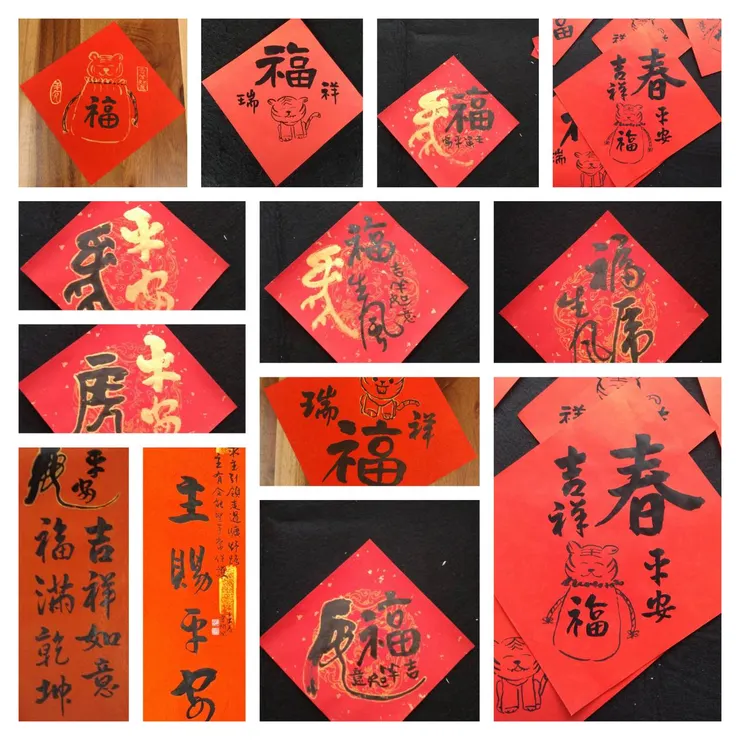 福
福
瑞 祥
福
春
吉祥
平安
福
瑞
平安
福
生風
吉祥如意
福虎
生風
平安
瑞 祥
福
平安
吉祥如意
福滿乾坤
主賜平安
福
吉祥如意
祥
春
吉祥
平安
福